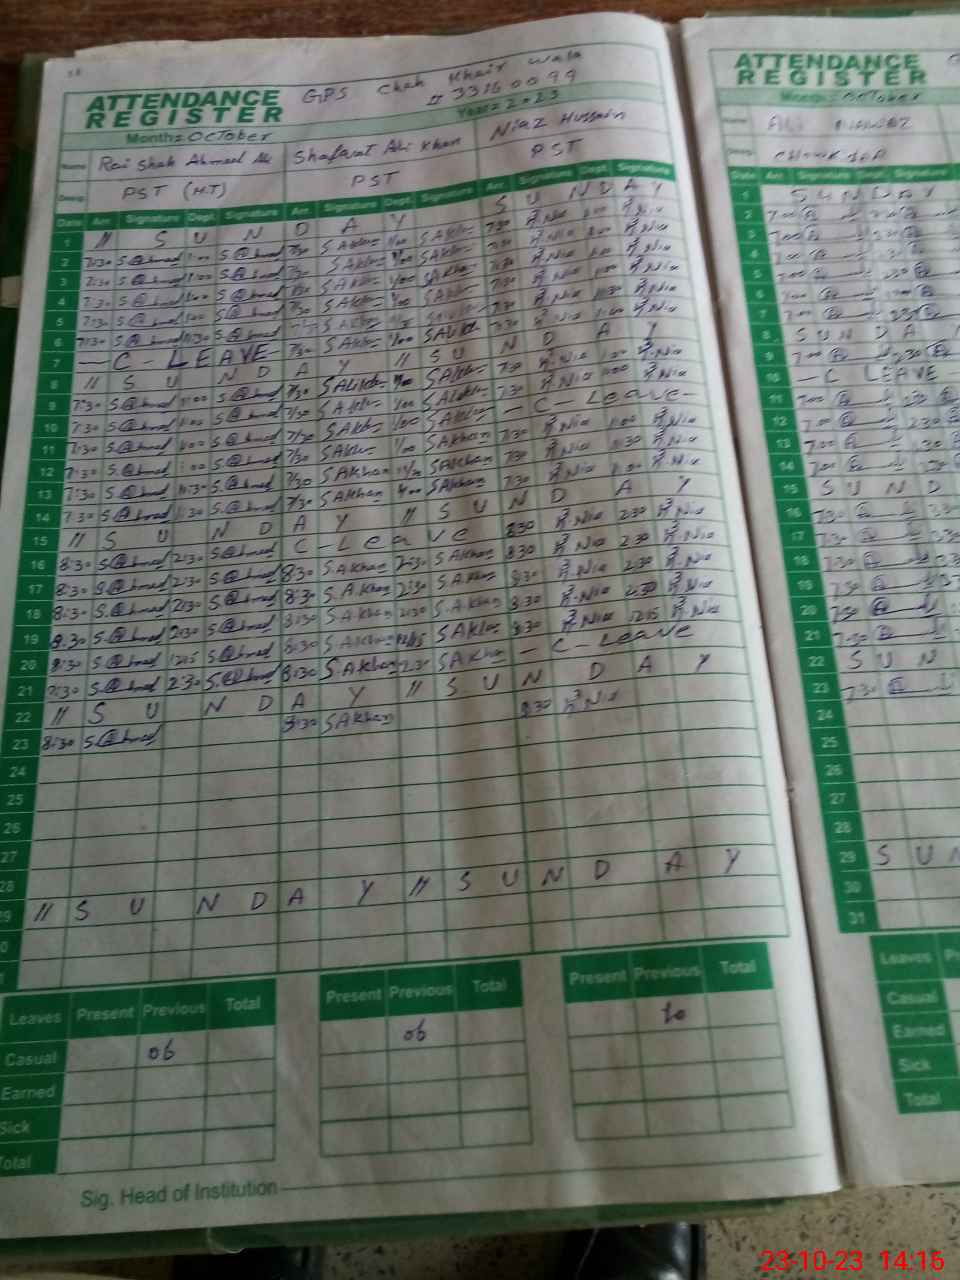 ATTENDANCE REGISTER
GPS Chah Khair wala
# 33160099
Month: October Year: 2023
Name Rai Shah Ahmad Ali Shafaat Ali Khan Niaz Hussain
Desig. PST (H.T) PST PST
Date Arr. Signature Dept. Signature Arr. Signature Dept. Signature Arr. Signature Dept. Signature
1 // S U N D A Y S U N D A Y
2 7:30 S.Ahmad 1:00 S.Ahmad 7/30 SAkhan 1/00 SAkhan 7:30 H.Nia 1:00 H.Nia
3 7:30 S.Ahmad 1:00 S.Ahmad 7/30 SAkhan 1/00 SAkhan 7:30 H.Nia 1:00 H.Nia
4 7:30 S.Ahmad 1:00 S.Ahmad 7/30 SAkhan 1/00 SAkhan 7:30 H.Nia 1:00 H.Nia
5 7:30 S.Ahmad 1:00 S.Ahmad 7/30 SAkhan 1/00 SAkhan 7:30 H.Nia 1:00 H.Nia
6 7:30 S.Ahmad 11:30 S.Ahmad SAkhan 7:30 H.Nia 11:30 H.Nia
7 — C - LEAVE 7/30 SAkhan 1/00 SAkhan 7:30 H.Nia 1:00 H.Nia
8 // S U N D A Y // S U N D A Y
9 7:30 S.Ahmad 1:00 S.Ahmad 7/30 SAkhan 1/00 SAkhan 7:30 H.Nia 1:00 H.Nia
10 7:30 S.Ahmad 1:00 S.Ahmad 7/30 SAkhan 1/00 SAkhan 7:30 H.Nia 1:00 H.Nia
11 7:30 S.Ahmad 1:00 S.Ahmad 7/30 SAkhan 1/00 SAkhan — C - Leave -
12 7:30 S.Ahmad 1:00 S.Ahmad 7/30 SAkhan 1/00 SAkhan 7:30 H.Nia 1:00 H.Nia
13 7:30 S.Ahmad 11:30 S.Ahmad 7/30 SAkhan 11/30 SAkhan 7:30 H.Nia 11:30 H.Nia
14 7:30 S.Ahmad 1:30 S.Ahmad 7/30 SAkhan 1/00 SAkhan 7:30 H.Nia 1:00 H.Nia
15 // S U N D A Y // S U N D A Y
16 8:30 S.Ahmad 2:30 S.Ahmad C - Leave 8:30 H.Nia 2:30 H.Nia
17 8:30 S.Ahmad 2:30 S.Ahmad 8:30 S.AKhan 2:30 S.AKhan 8:30 H.Nia 2:30 H.Nia
18 8:30 S.Ahmad 2:30 S.Ahmad 8:30 S.AKhan 2:30 S.AKhan 8:30 H.Nia 2:30 H.Nia
19 8:30 S.Ahmad 2:30 S.Ahmad 8:30 S.AKhan 2:30 S.AKhan 8:30 H.Nia 2:30 H.Nia
20 8:30 S.Ahmad 12:15 S.Ahmad 8:30 S.AKhan 12/15 SAKhan 8:30 H.Nia 12:15 H.Nia
21 8:30 S.Ahmad 2:30 S.Ahmad 8:30 S.AKhan 2:30 SAKhan — C - Leave
22 // S U N D A Y // S U N D A Y
23 8:30 S.Ahmad 8:30 SAKhan 8:30 H.Nia
24
25
26
27
28
29 // S U N D A Y // S U N D A Y
Leaves Present Previous Total Present Previous Total Present Previous Total
Casual 06 06 10
Earned
Sick
Total
Sig. Head of Institution
ATTENDANCE REGISTER
Month: October
Name ALI NAWAZ
Desig. CHOWKIDAR
Date Arr. Signature Dept. Signature
1 S U N D A Y
2 7:00
3 7:00
4 7:00
5 7:00
6 7:00
7 7:00
8 S U N D A
9 7:00 1:30
10 — C LEAVE
11 7:00
12 7:00 2:30
13 7:00 1:30
14 7:00
15 S U N D
16 7:30
17 7:30
18 7:30
19 7:30
20 7:30
21 7:30
22 S U N
23 7:30
24
25
26
27
28
29 S U N
30
31
Leaves
Casual
Earned
Sick
Total
23-10-23 14:16